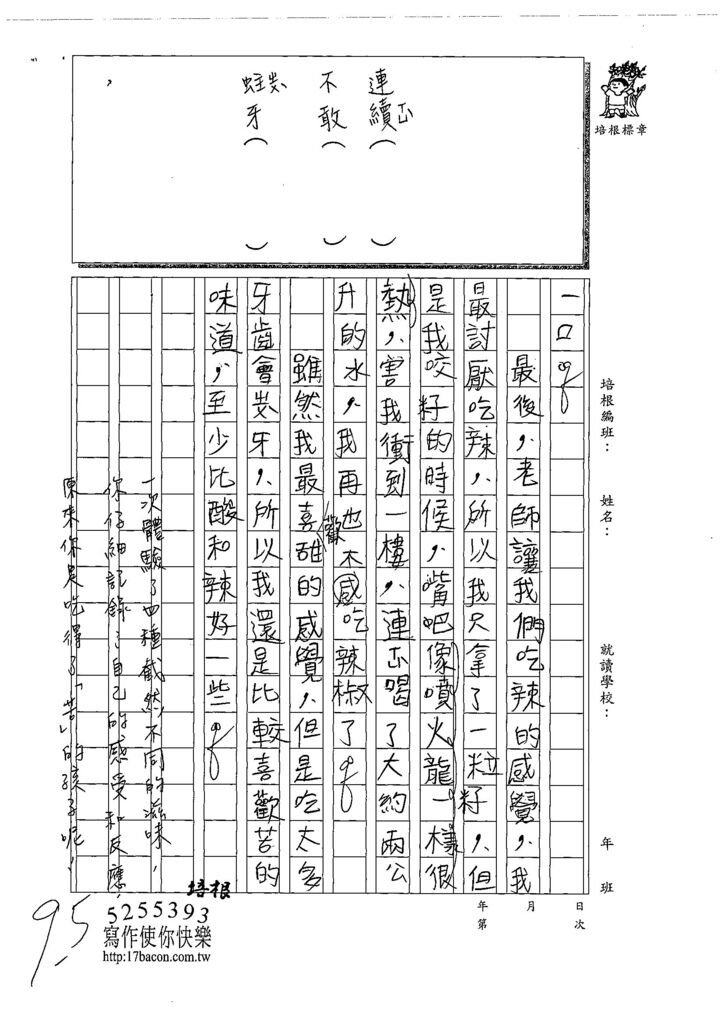 培根標章
連續ㄓㄥ（ ）
不敢（ ）
蛀ㄓㄨ牙（ ）
培根編班： 姓名： 就讀學校： 年 班
一口。
最後，老師讓我們吃辣的感覺，我
最討厭吃辣，所以我只拿了一粒籽，但
是我咬籽的時候，嘴吧像噴火龍一樣很
熱，害我衝到一樓，連ㄓㄥ喝了大約兩公
升的水，我再也不感吃辣椒了。
雖然我最喜歡甜的感覺，但是吃太多
牙齒會ㄓㄨ牙，所以我還是比較喜歡苦的
味道，至少比酸和辣好一些。
一次體驗了四種截然不同的滋味，
你仔細記錄了自己的感受和反應，
原來你是吃得了「苦」的孩子呢！
年 月 日
第 次
95
培根
5255393
寫作使你快樂
http:17bacon.com.tw